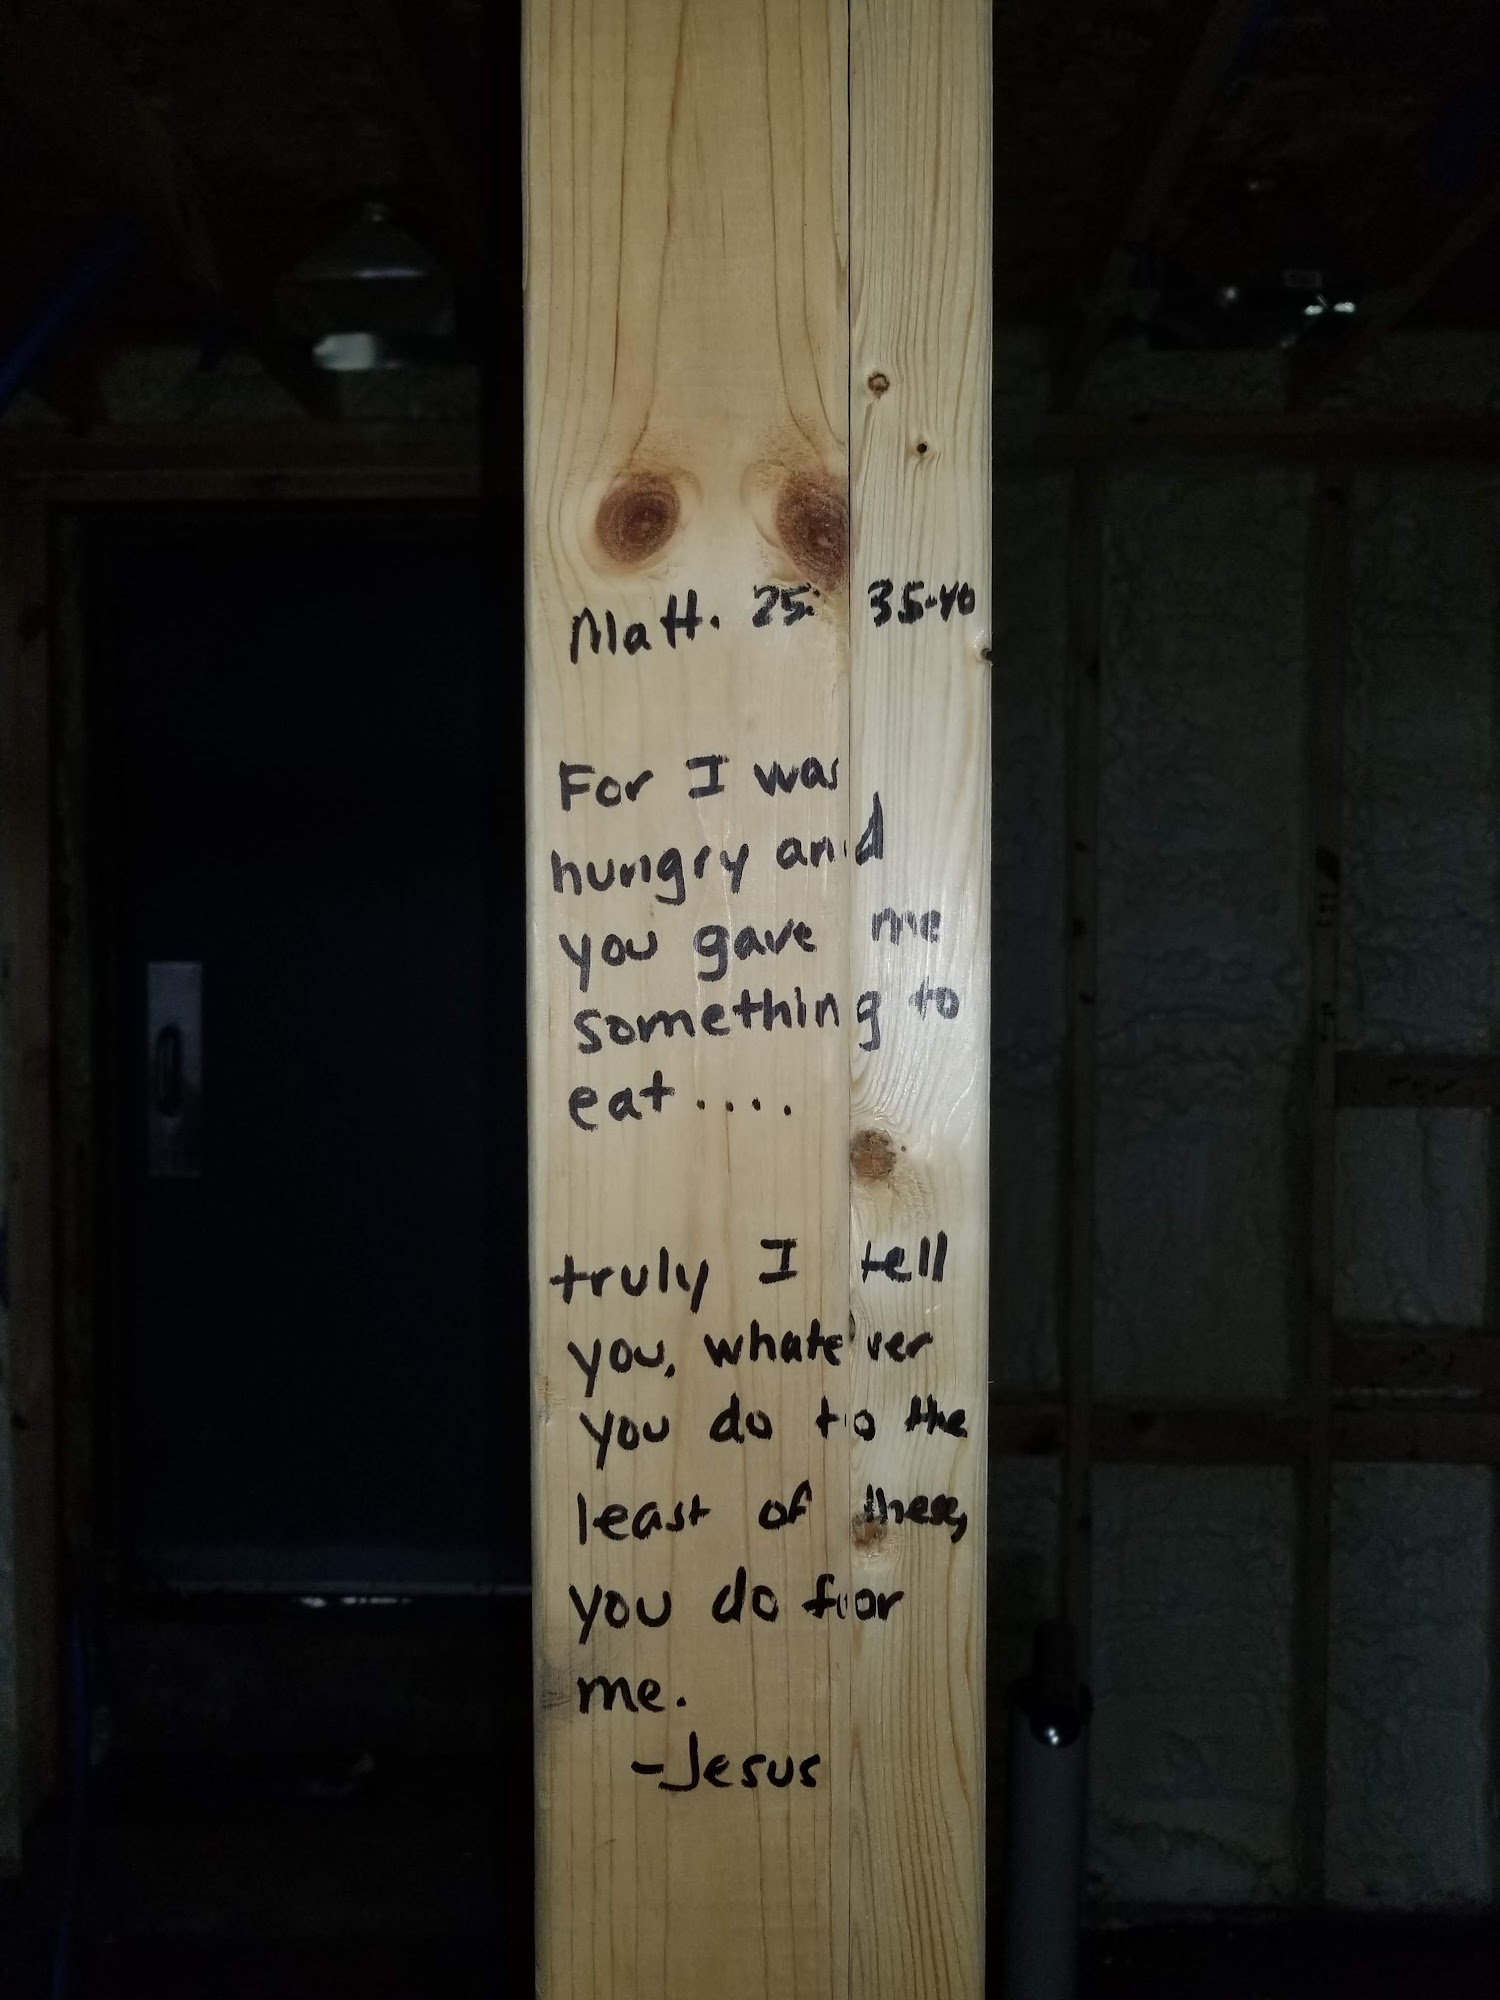 Matt. 25: 35-40
For I was
hungry and
you gave me
something to
eat....
truly I tell
you, whatever
you do to the
least of these,
you do for
me.
-Jesus